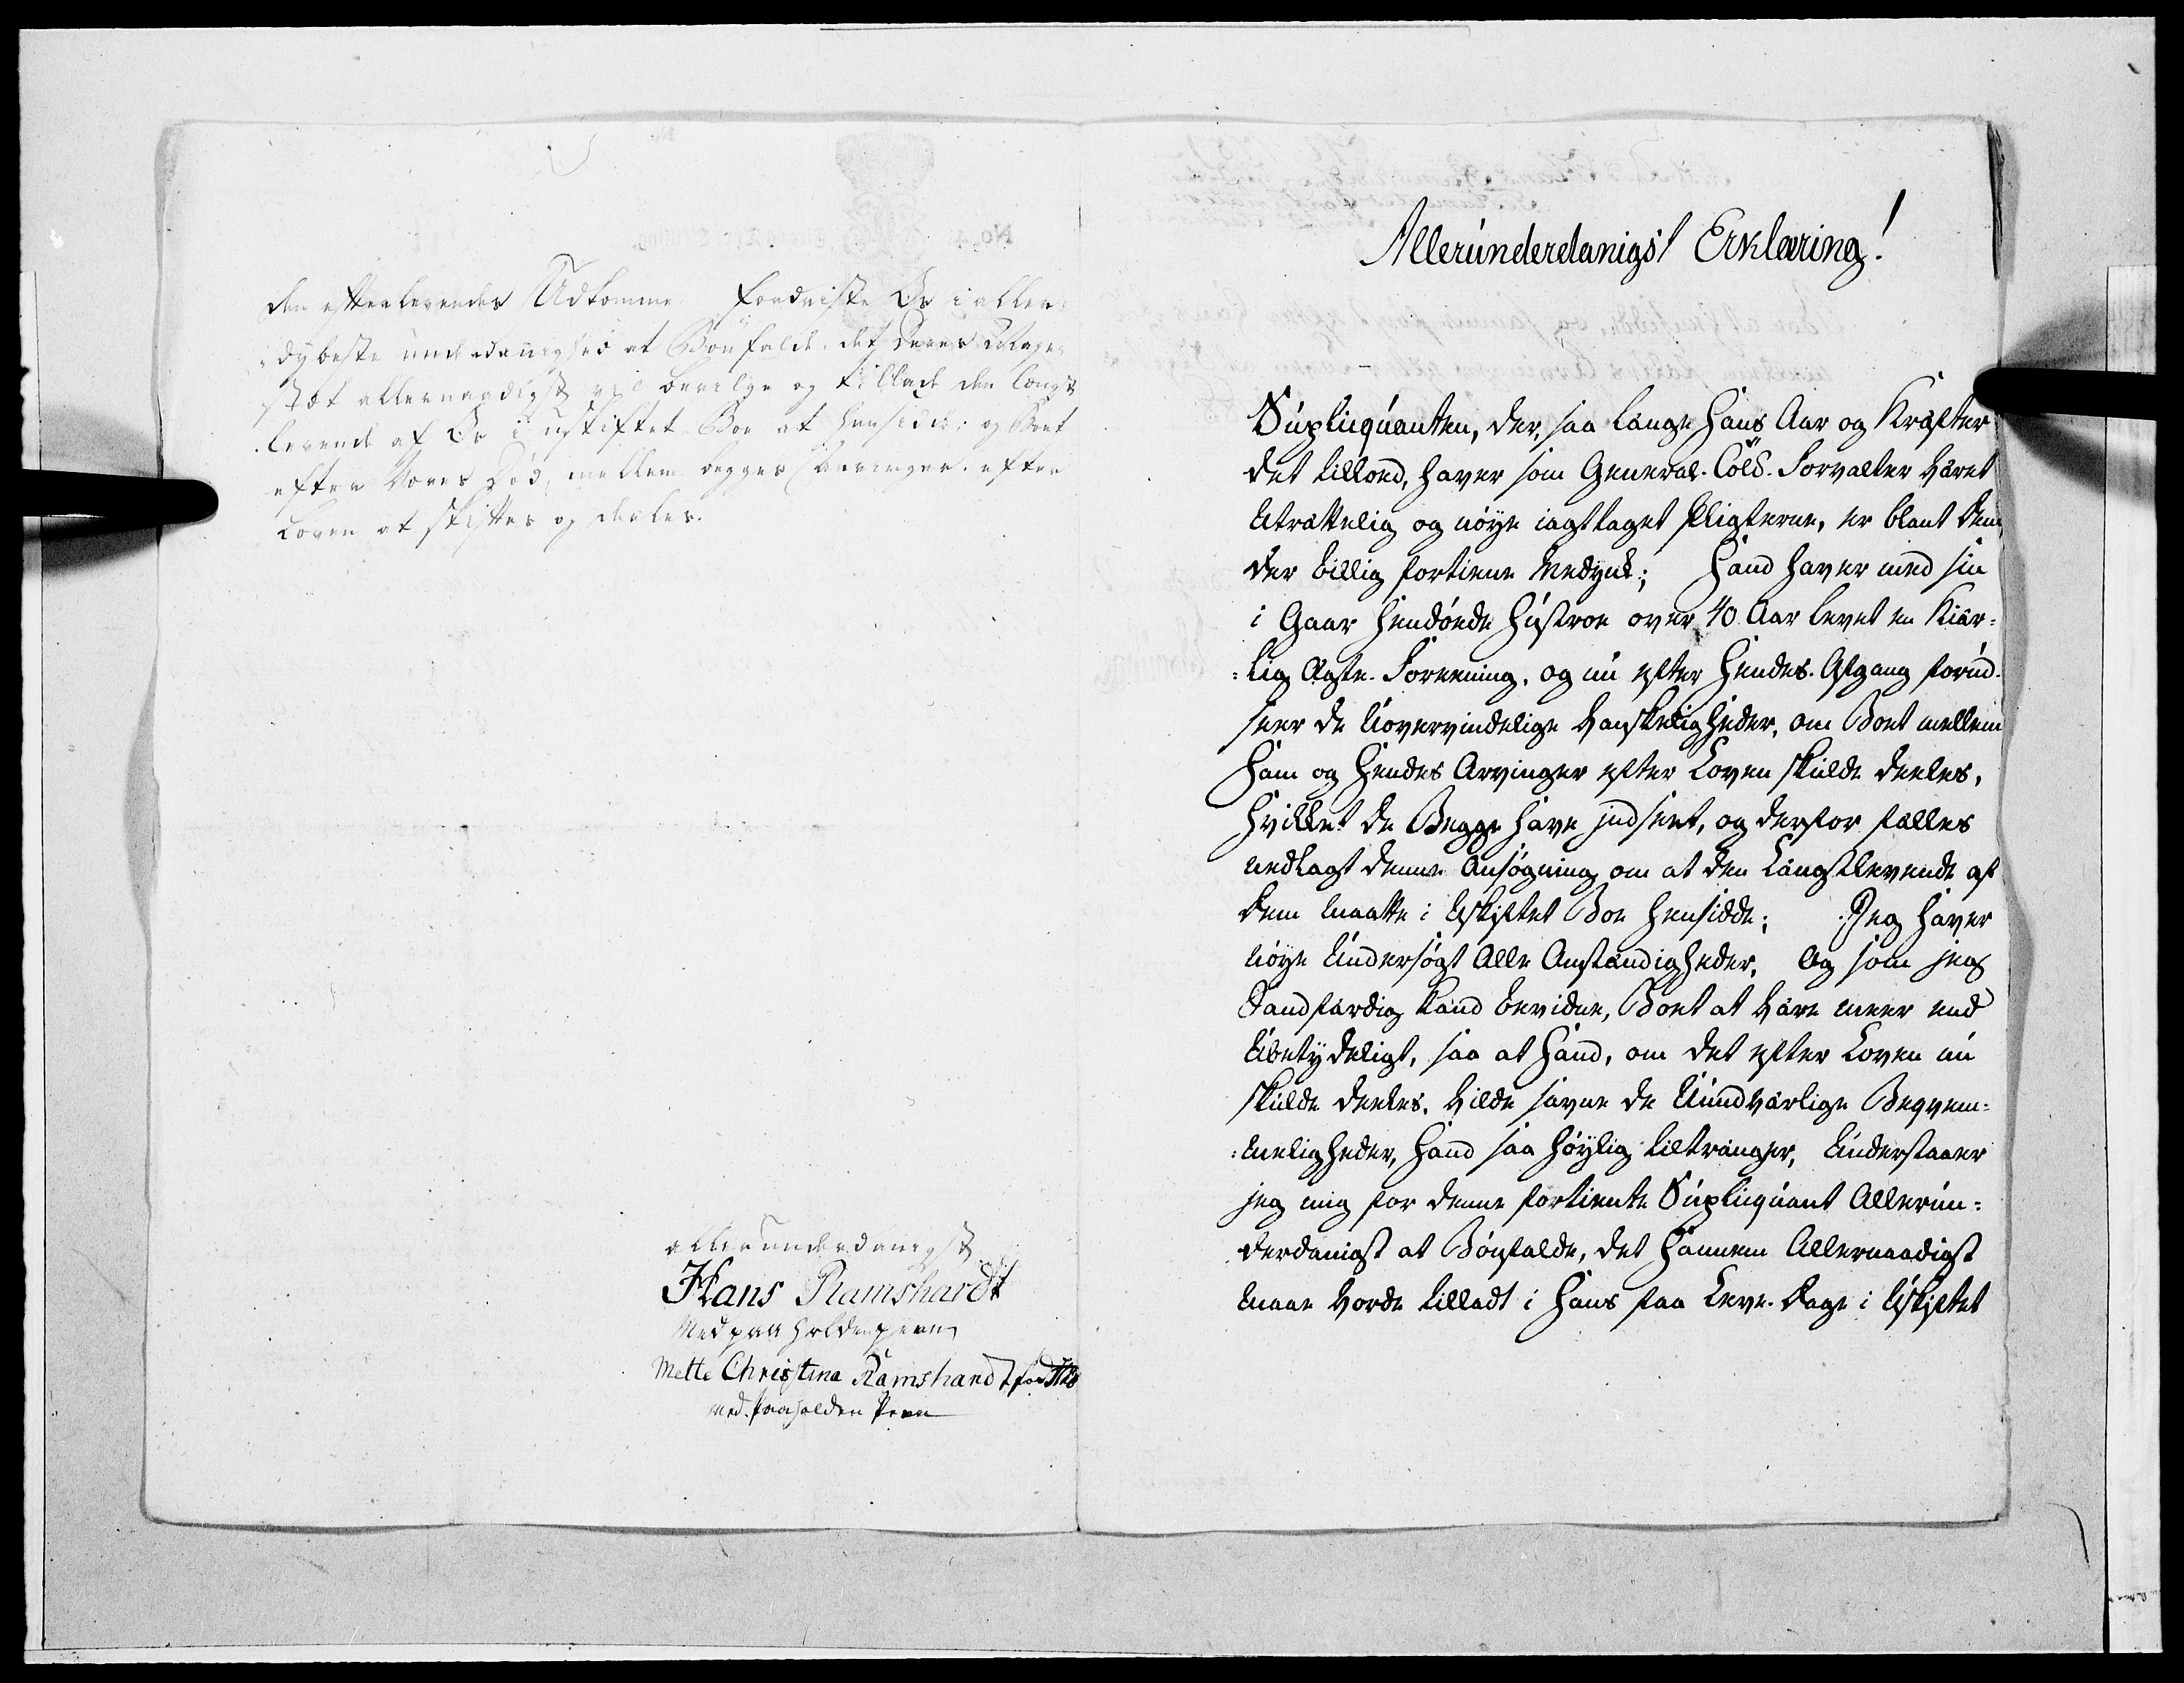 den efterlevendes Udkomme fordriste Vi i aller¬
dybeste underdanighed at Bønfalde, det Deres Maye¬
stæt allernaadigst vil bevilge og tillade den længst
levende af Os i uskiftet Boe at hensidde, og Boet
efter Vores Død, mellem begges Arvinger efter
Loven at skiftes og deeles.
allerunderdanigst
Hans Ramshardt
Med paa holden pen
Mette Christina Ramshardt
med paaholden Pen
Allerunderdanigst Erklæring!
Supliquanten, der, saa længe Hans Aar og Kræfter
det tillod, haver som General. Told. Forvalter været
Utrættelig og nøye iagttaget Pligterne, er blant dem,
der billig fortiene Medynk; Hand haver med sin
i Gaar Hendøede Hustroe over 40 Aar levet en Kiær¬
¬lig Ægte. Foreening, og nu efter Hendes Afgang forud¬
seer de Uovervindelige Vanskeligheder, om Boet mellem
Ham og Hendes Arvinger efter Loven skulde deeles,
hvilket de Begge have indseet, og derfor fælles
nedlagt denne Ansøgning om at den Længstlevende af
dem maatte i Uskiftet Boe hensidde; Jeg haver
nøye Undersøgt Alle Omstændigheder, Og som jeg
Sandfærdig kand bevidne, Boet at være meer end
Ubetydeligt, saa at Hand, om det efter Loven nu
skulde deeles, vilde savne de Uundværlige Beqvem¬
¬meligheder, Hand saa høylig tiltrænger, Understaaer
jeg mig for denne fortiente Supliquant Allerun¬
derdanigst at Bønfalde, det Hannem Allernaadigst
maae vorde tilladt i Hans faa Leve. Dage i Uskiftet